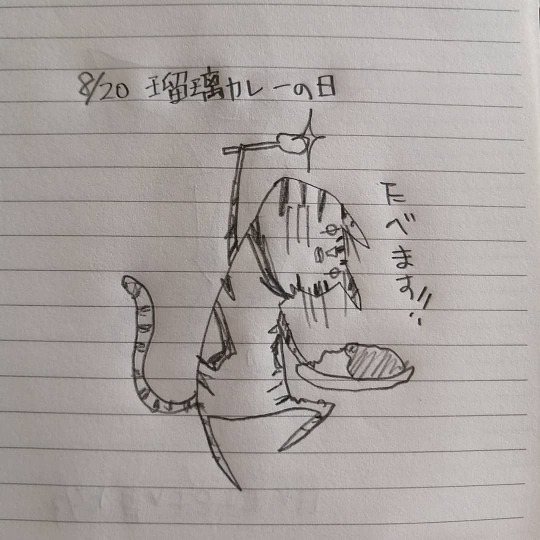 8/20 瑠璃カレーの日
たべます!!